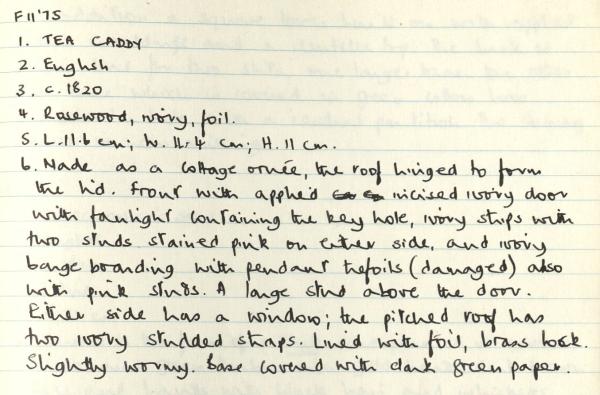 F11'75
1. TEA CADDY
2. English
3. c. 1820
4. Rosewood, ivory, foil.
5. L. 11.6 cm; W. 11.4 cm; H. 11 cm.
6. Made as a cottage ornée, the roof hinged to form
the lid. Front with applied incised ivory door
with fanlight containing the key hole, ivory strips with
two studs stained pink on either side, and ivory
barge boarding with pendant trefoils (damaged) also
with pink studs. A large stud above the door.
Either side has a window; the pitched roof has
two ivory studded straps. Lined with foil, brass lock.
Slightly wormy. Base covered with dark green paper.